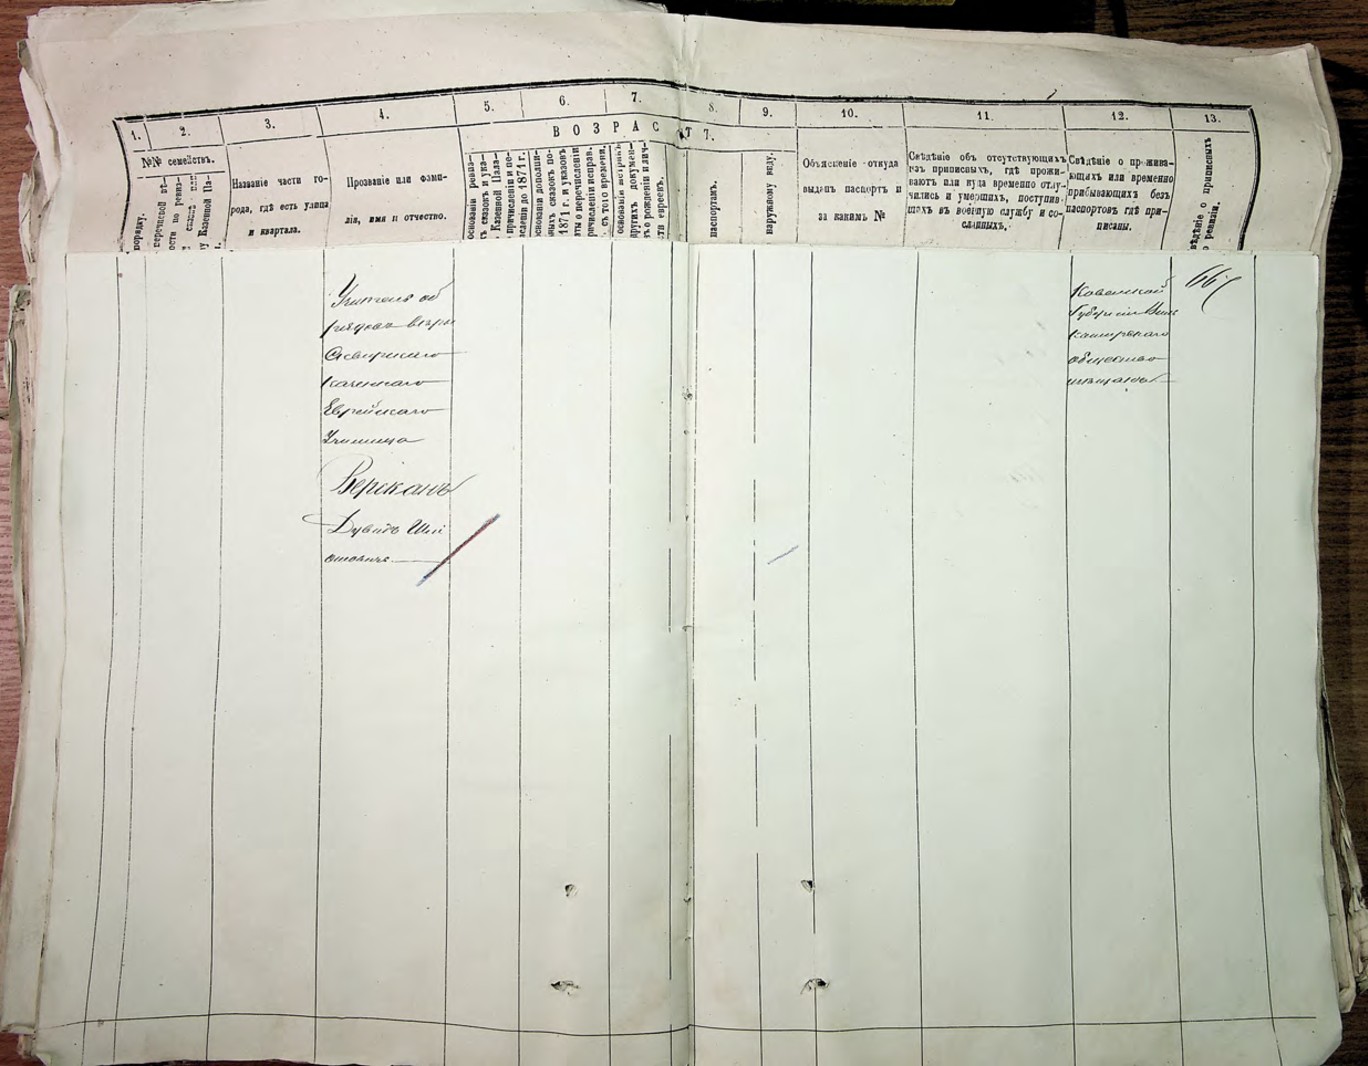 1. 2. 3. 4. 5. 6. 7. 8. 9. 10. 11. 12. 13.
ВОЗРАСТ 7.
№№ семействъ.
порядку.
Казенной Па-
Названіе части го-
рода, гдѣ есть улица
и квартала.
Прозваніе или фами-
лія, имя и отчество.
основаніи ревиз-
ъ сказокъ и ука-
Казенной Пала-
причисленіи и пе-
веденіи до 1871 г.
основаніи дополни-
ныхъ сказокъ по-
1871 г. и указовъ
ты о перечисленіи
ричисленіи исправ.
съ того времени.
основаніи метрик.
другихъ докумен-
въ о рожденіи и лич-
сти евреевъ.
паспортамъ.
наружному виду.
Объясненіе откуда
выданъ паспортъ и
за какимъ №
Свѣдѣніе объ отсутствующихъ
изъ приписныхъ, гдѣ прожи-
ваютъ или куда временно отлу-
чились и умершихъ, поступив-
шихъ въ военную службу и со-
сланныхъ.
Свѣдѣніе о прожива-
ющихъ или временно
прибывающихъ безъ
паспортовъ гдѣ при-
писаны.
вѣдѣніе о приписныхъ
о ревизіи.
Учитель об
рядовъ вѣры
Свирскаго
казеннаго
Еврейскаго
Училища
Верскакъ
Дувидъ
Ковенской
Губерніи
общества
мѣщанинъ
66